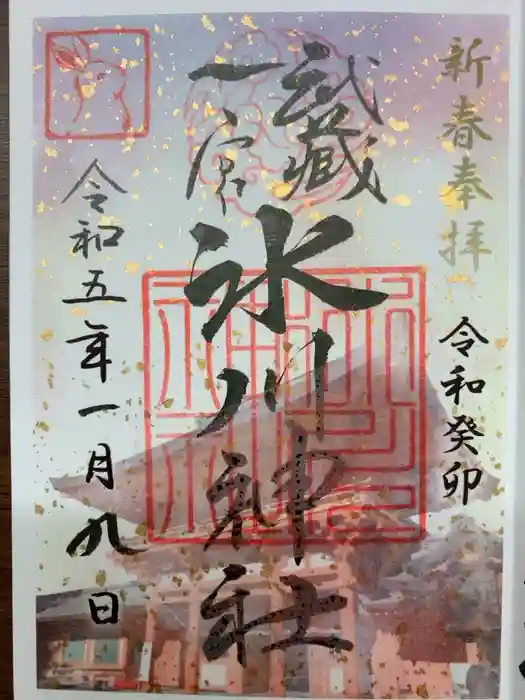 新春奉拝
令和癸卯
武蔵
一宮
氷川神社
令和五年一月九日